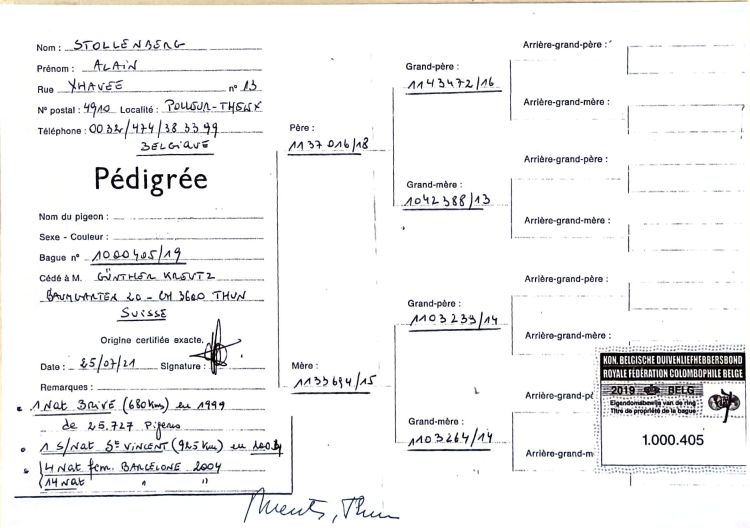 Nom : STOLLENBERG
Prénom : ALAIN
Rue XHAVÉE n° 13
N° postal : 4910 Localité : POLLEUR-THEUX
Téléphone : 0032/474/38 33 99
BELGIQUE
Pédigrée
Nom du pigeon :
Sexe - Couleur :
Bague n° 1000405/19
Cédé à M. GÜNTHER KREUTZ
BAUMGARTEN 20 - CH 3600 THUN
SUISSE
Origine certifiée exacte,
Date : 25/07/21 Signature :
Remarques :
1 Nat BRIVE (680 Kms) en 1999
de 25.727 Pigeons
1 S/Nat St VINCENT (925 Km) en
4 Nat fem. BARCELONE 2004
14 Nat " "
Père :
1137016/18
Mère :
1133694/15
Grand-père :
1143472/16
Grand-mère :
1042388/13
Grand-père :
1103239/14
Grand-mère :
1103264/14
Arrière-grand-père :
Arrière-grand-mère :
Arrière-grand-père :
Arrière-grand-mère :
Arrière-grand-père :
Arrière-grand-mère :
Arrière-grand-pè
Arrière-grand-m
KON. BELGISCHE DUIVENLIEFHEBBERSBOND
ROYALE FÉDÉRATION COLOMBOPHILE BELGE
2019 BELG
Eigendomsbewijs van de ring
Titre de propriété de la bague
1.000.405
Thun